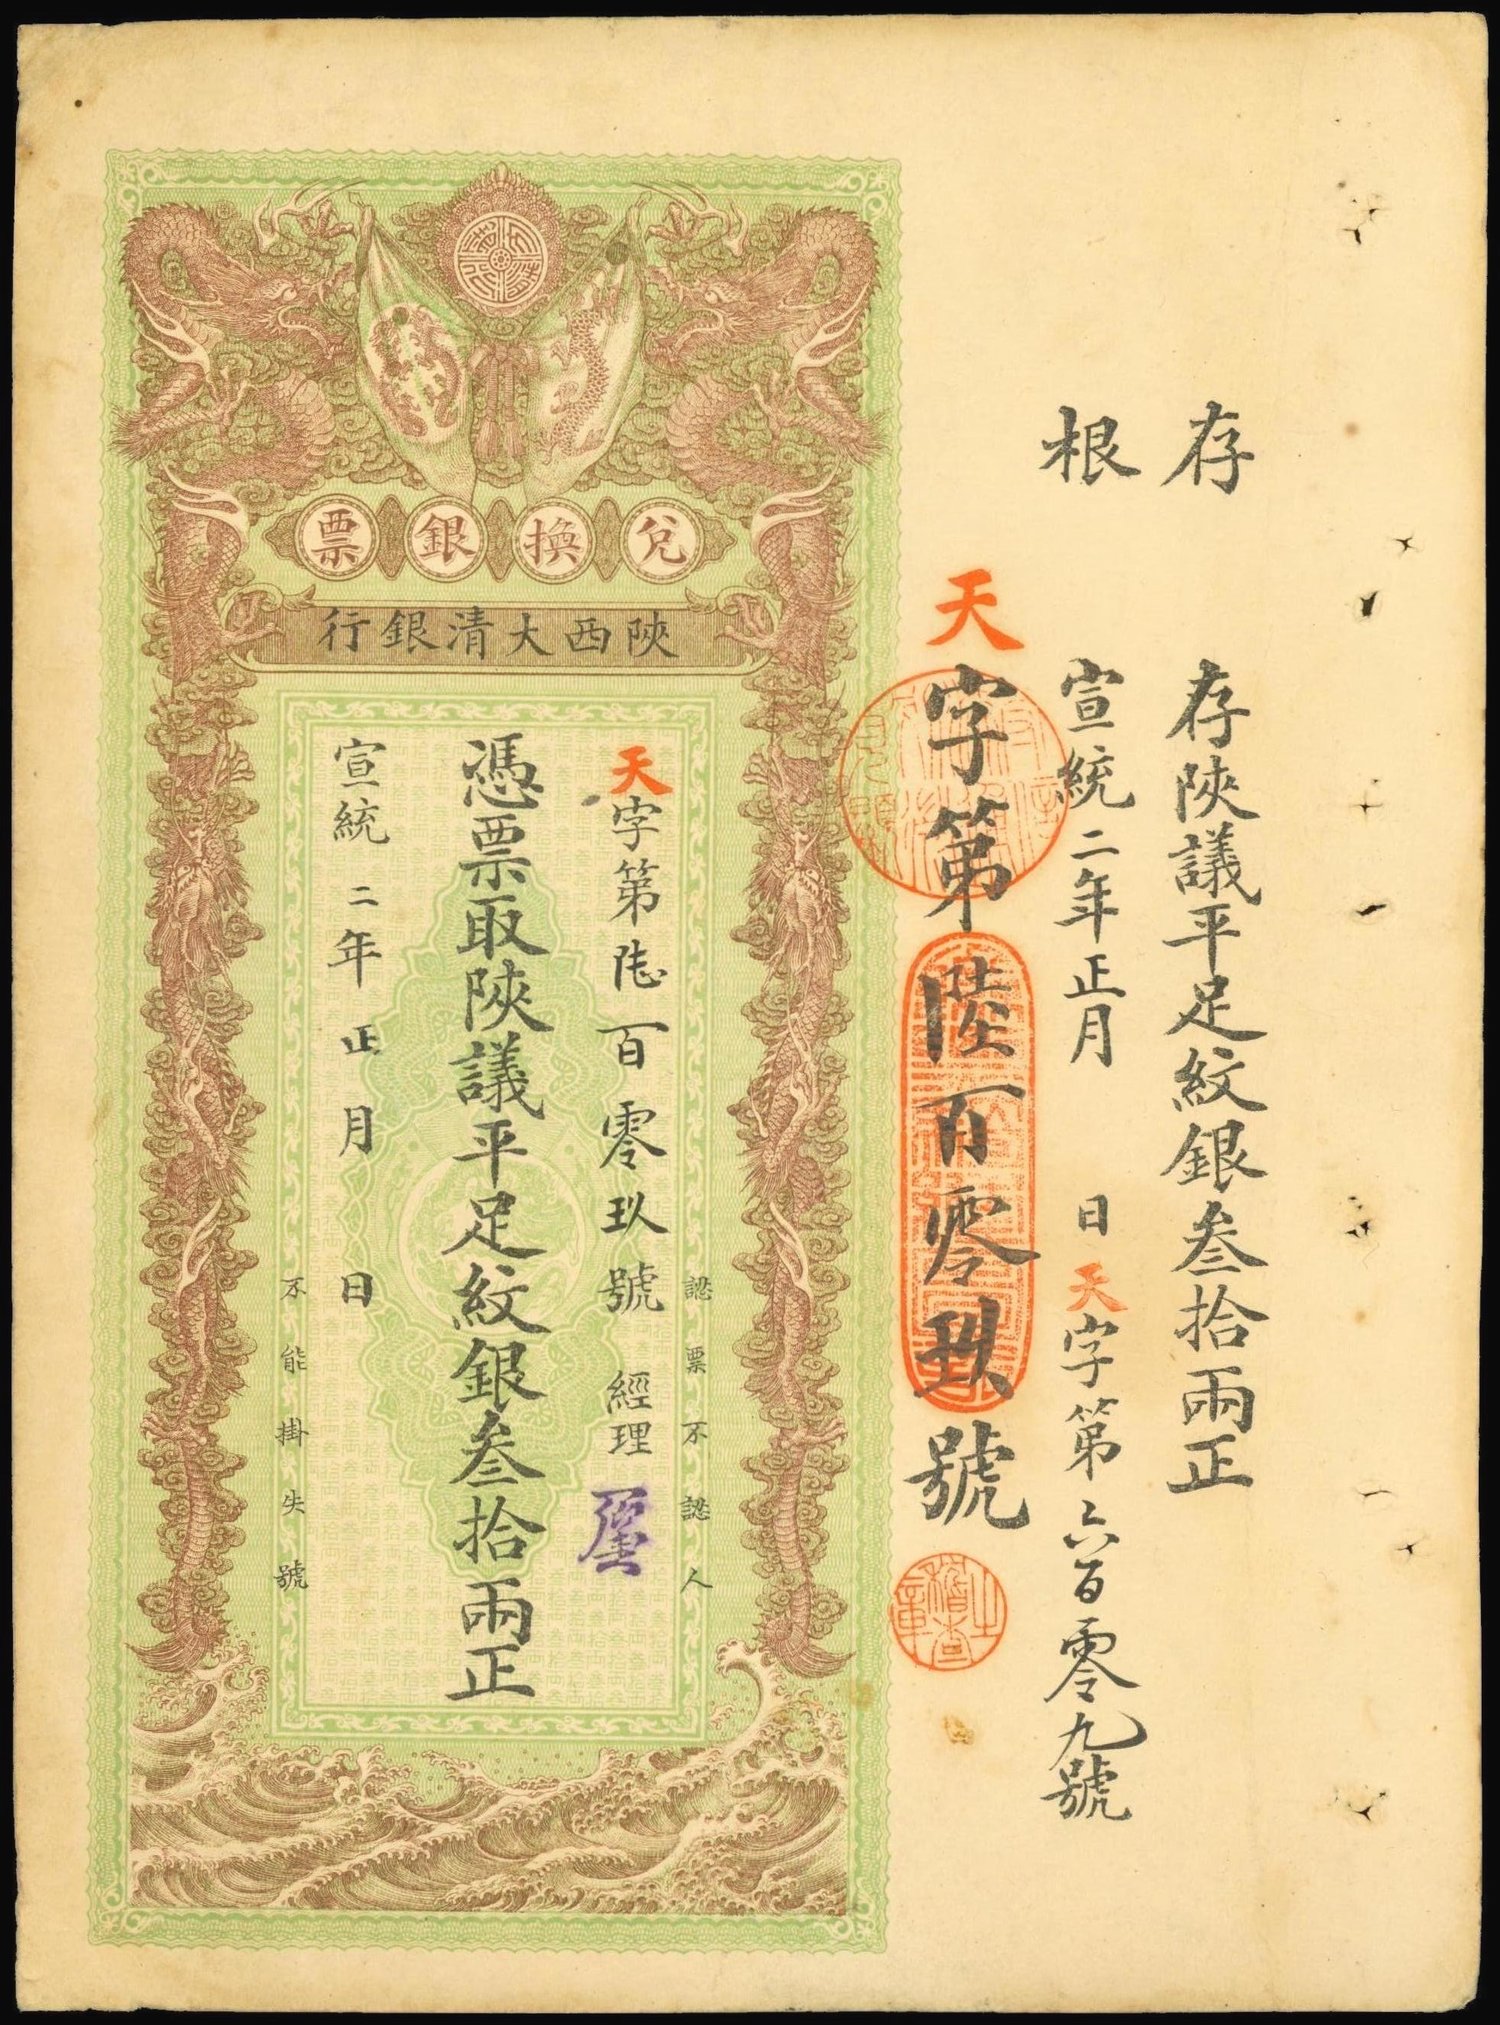 存根
存陝議平足紋銀叁拾兩正
宣統二年正月 日天字第六百零九號
天字第陸百零玖號
兌換銀票
陝西大清銀行
認票不認人
天字第陸百零玖號 經理
憑票取陝議平足紋銀叁拾兩正
宣統二年正月 日
不能掛失號